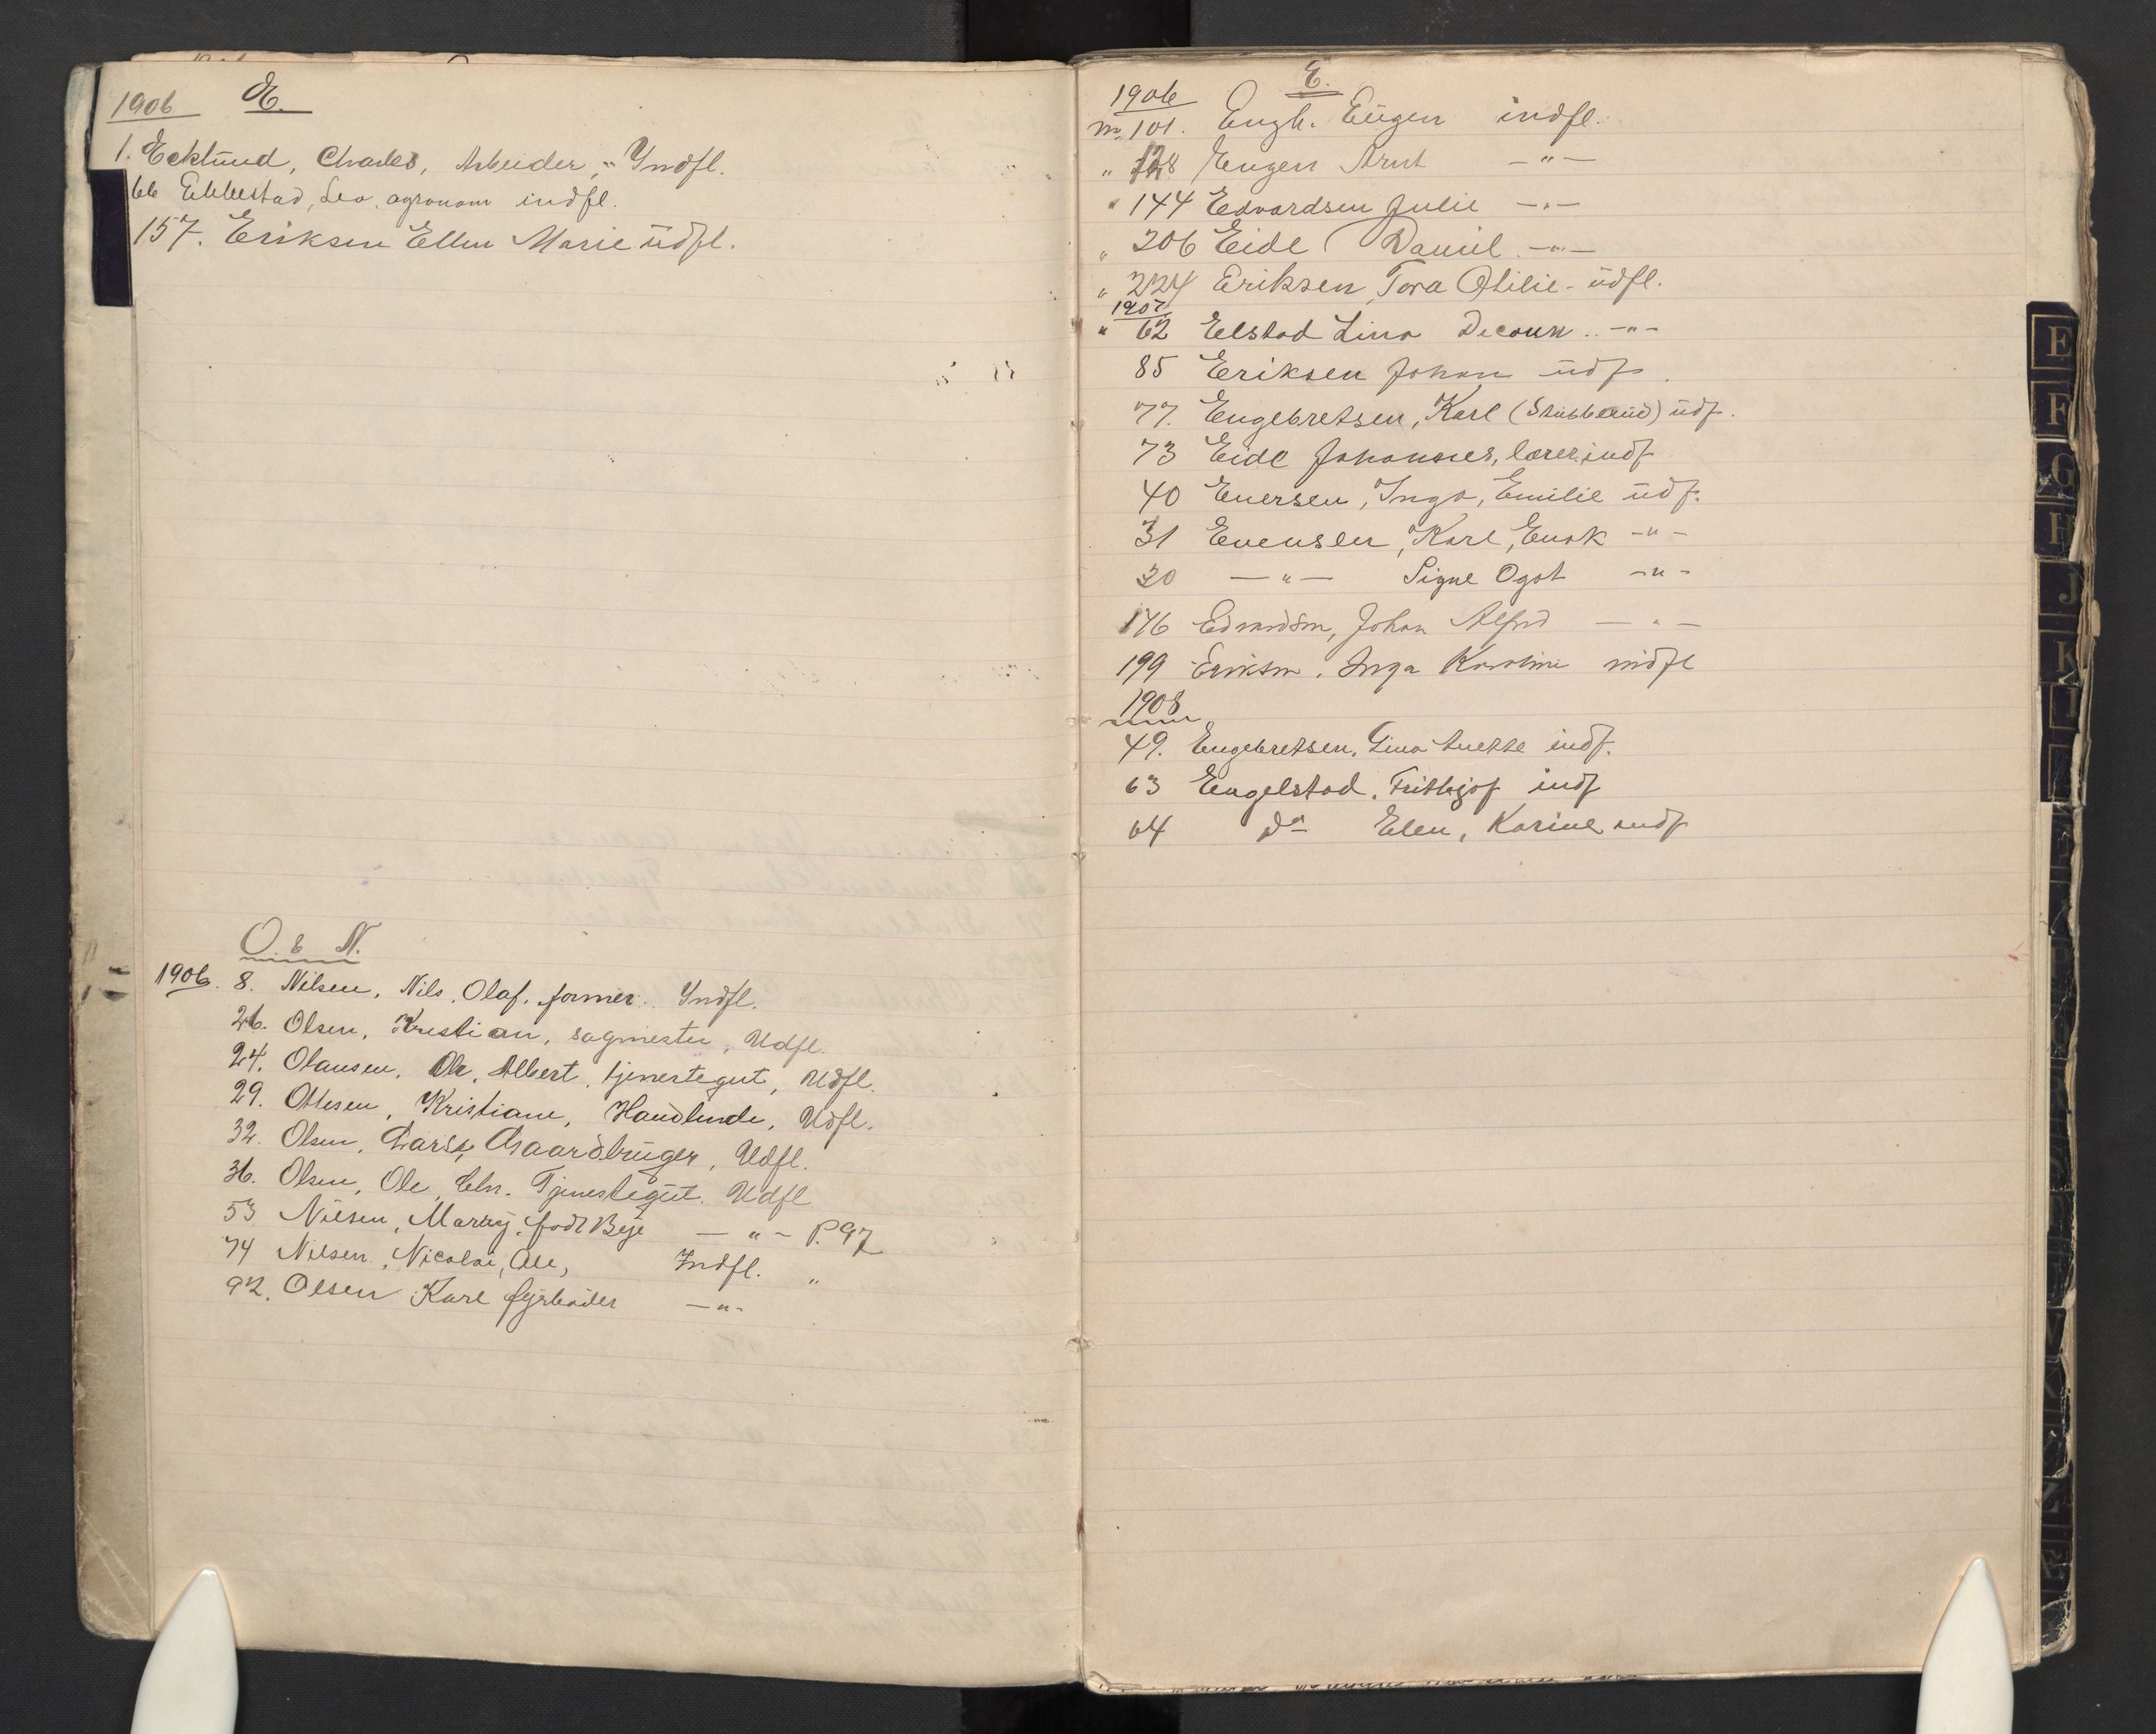 1906 E.
1. Ecklund, Charles, Arbeider, Yndfl.
66 Ebbestad, Leo, agronom indfl.
157. Eriksen Ellen Marie üdfl.
O. & N.
1906. 8. Nilsen, Nils, Olaf, former. Yndfl.
26. Olsen, Kristian, sagmester, Udfl.
24. Olausen, Ole, Albert, tjenestegut, Udfl.
29. Ottesen, Kristiane, Handlende, Udfl.
32. Olsen, Lars, Gaardbrüger, Udfl.
36. Olsen, Ole, Tjenestegüt. Udfl
53 Nilsen, født Beje — " — P. 97
74 Nilsen, Nicolai, Ole, Indfl. "
92. Olsen Karl fyrbøder — " -
E.
1906
No 101. Engh. Eügen indfl.
" 128 Engen Arnt — " —
" 144 Edvardsen Julie — " —
" 206 Eide Daniel — " —
" 224 Eriksen, Tora Otilie - üdfl.
1907
" 62 Elstad Lina - " -
85 Eriksen Johan üdf.
77. Engebretsen, Karl (Stubberüd) üdf.
73 Eide Johannes, lærer indf
40 Enersen, Inga, Emilie üdf.
31 Evensen, Karl, Enok - " -
30 — " — Signe Ogot - " -
176 Edvardsen, Johan Alfred — " —
199 Eriksen, Inga Karoline indfl
1908
49. Engebretsen, Gina indf.
63 Engelstad, Frithjof indf
64 do Elen, Karine indf
E
F
G
H
J
K